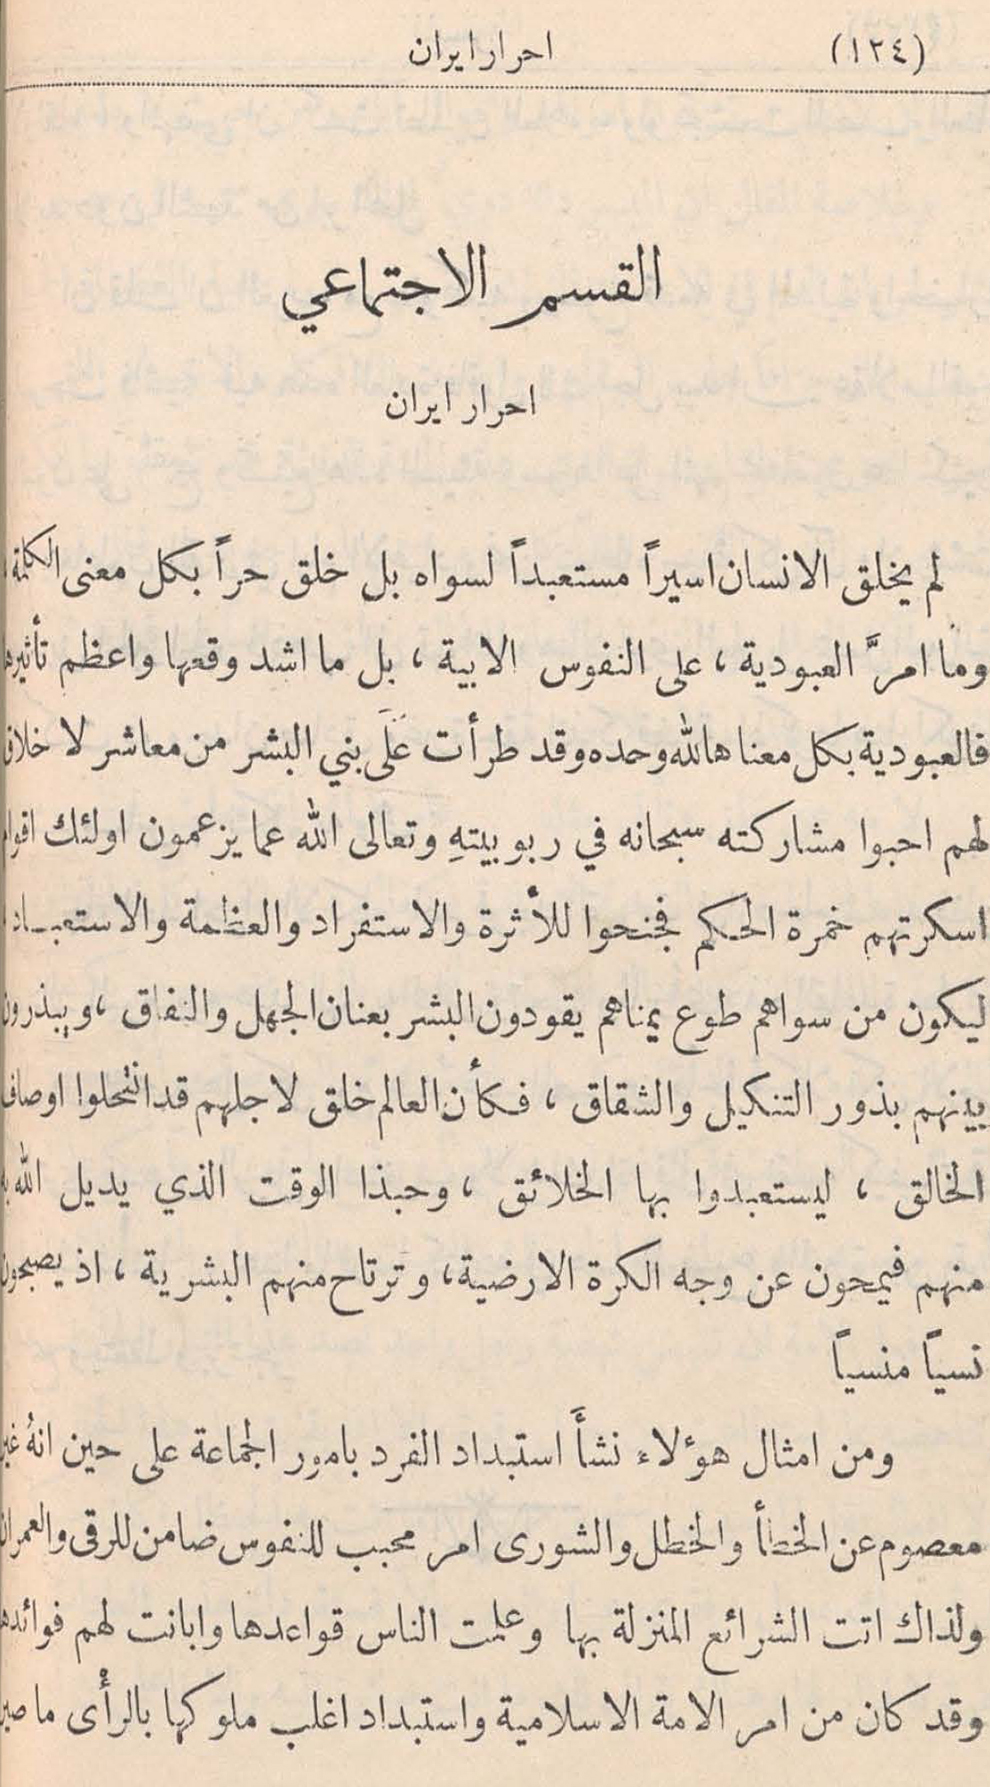 (١٢٤) احرار ايران
القسم الاجتماعي
احرار ايران
لم يخلق الانسان اسيراً مستعبداً لسواه بل خلق حراً بكل معنى الكلمة
وما امرَّ العبودية ، على النفوس الابية ، بل ما اشد وقعها واعظم تأثيرها
فالعبودية بكل معناها لله وحده وقد طرأت عَلَى بني البشر من معاشر لا خلاق
لهم احبوا مشاركته سبحانه في ربوبيتهِ وتعالى الله عما يزعمون اولئك اقوام
اسكرتهم خمرة الحكم فجنحوا للأثرة والاستفراد والعظمة والاستعباد
ليكون من سواهم طوع يمناهم يقودون البشر بعنان الجهل والنفاق ، ويبذرون
بينهم بذور التنكيل والشقاق ، فكأن العالم خلق لاجلهم قد انتحلوا اوصاف
الخالق ، ليستعبدوا بها الخلائق ، وحبذا الوقت الذي يديل الله
منهم فيمحون عن وجه الكرة الارضية ، وترتاح منهم البشرية ، اذ يصبحون
نسياً منسياً
ومن امثال هؤلاء نشأَ استبداد الفرد بامور الجماعة على حين انهُ غير
معصوم عن الخطأ والخطل والشورى امر محبب للنفوس ضامن للرقى والعمران
ولذاك اتت الشرائع المنزلة بها وعلمت الناس قواعدها وابانت لهم فوائدها
وقد كان من امر الامة الاسلامية واستبداد اغلب ملوكها بالرأْى ما